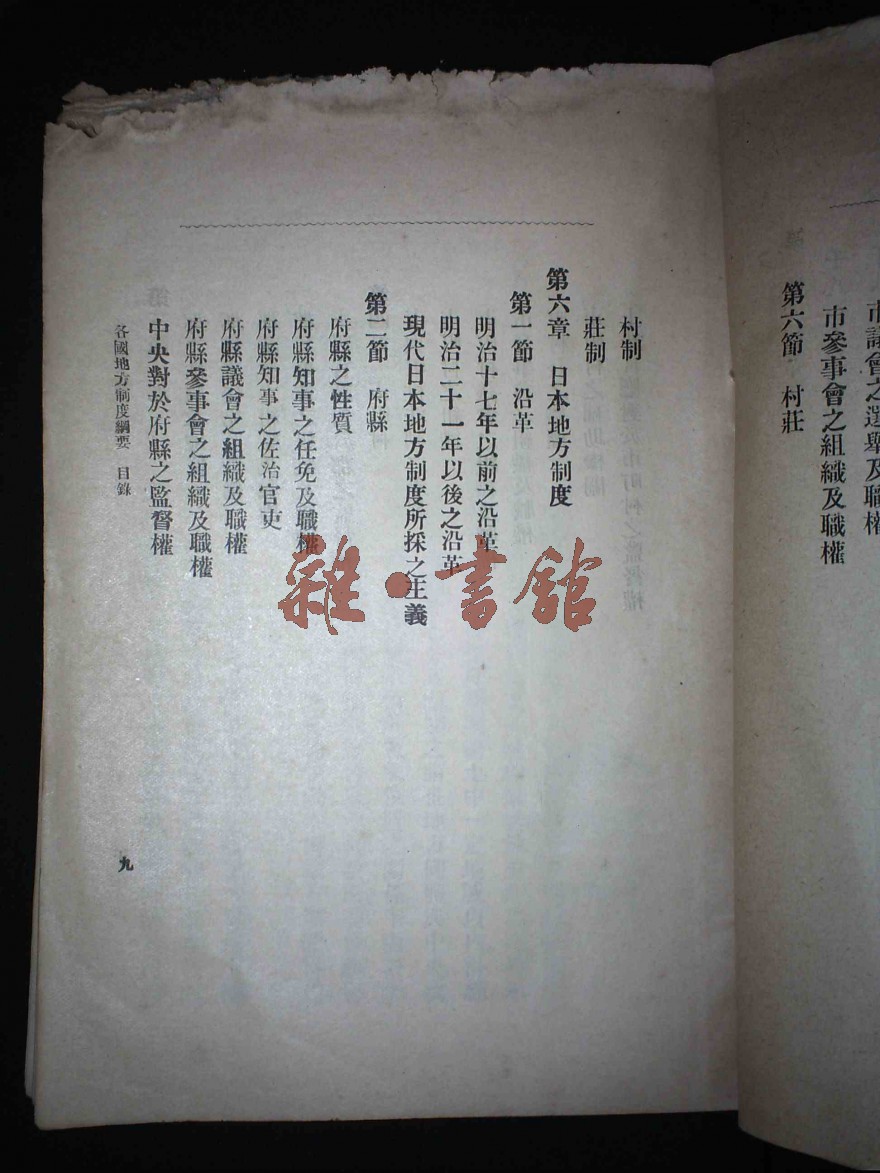 市議會之選舉及職權
市參事會之組織及職權
第六節 村莊
村制
莊制
第六章 日本地方制度
第一節 沿革
明治十七年以前之沿革
明治二十一年以後之沿革
現代日本地方制度所採之主義
第二節 府縣
府縣之性質
府縣知事之任免及職權
府縣知事之佐治官吏
府縣議會之組織及職權
府縣參事會之組織及職權
中央對於府縣之監督權
各國地方制度綱要 目錄
九
雜·書館